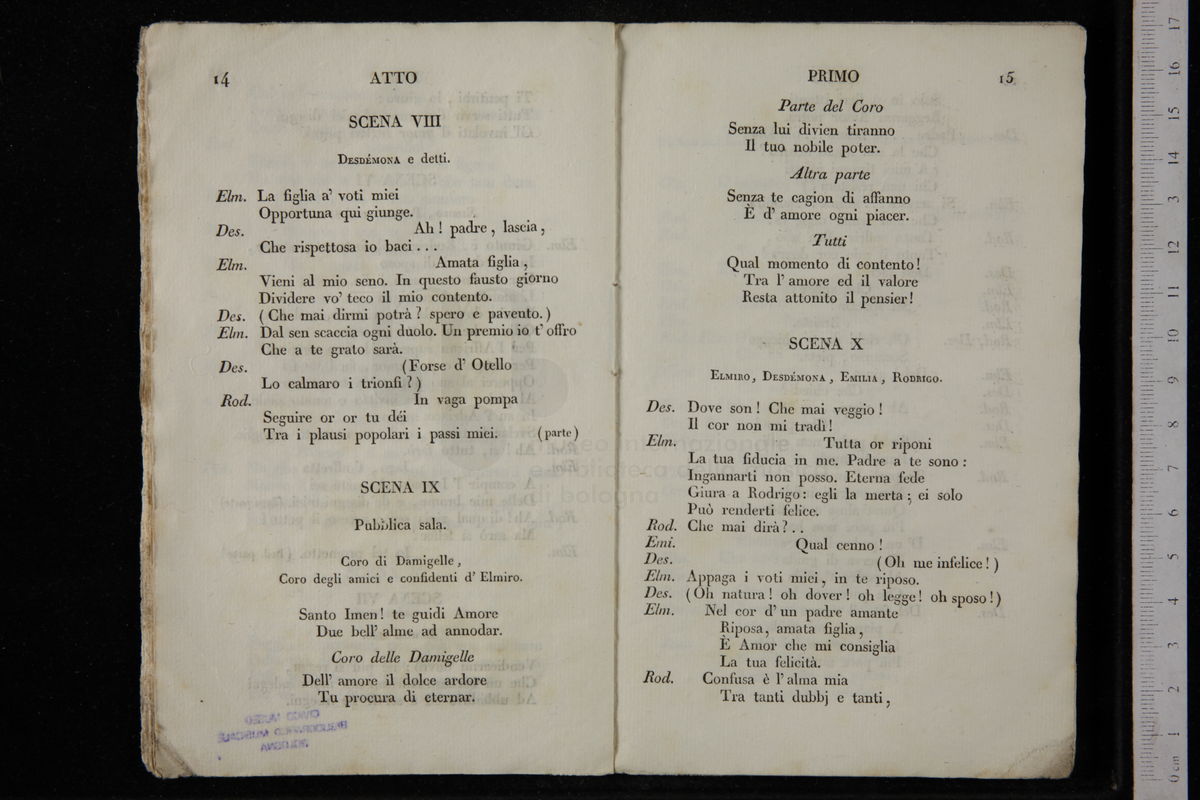 14
ATTO
SCENA VIII
Desdémona e detti.
Elm. La figlia a' voti miei
Opportuna qui giunge.
Des. Ah! padre, lascia,
Che rispettosa io baci...
Elm. Amata figlia,
Vieni al mio seno. In questo fausto giorno
Dividere vo' teco il mio contento.
Des. (Che mai dirmi potrà? spero e pavento.)
Elm. Dal sen scaccia ogni duolo. Un premio io t'offro
Che a te grato sarà.
Des. (Forse d' Otello
Lo calmaro i trionfi?)
Rod. In vaga pompa
Seguire or or tu déi
Tra i plausi popolari i passi miei. (parte)
SCENA IX
Pubblica sala.
Coro di Damigelle,
Coro degli amici e confidenti d' Elmiro.
Santo Imen! te guidi Amore
Due bell' alme ad annodar.
Coro delle Damigelle
Dell' amore il dolce ardore
Tu procura di eternar.
CIVICO MUSEO
BIBLIOGRAFICO MUSICALE
BOLOGNA
PRIMO
15
Parte del Coro
Senza lui divien tiranno
Il tuo nobile poter.
Altra parte
Senza te cagion di affanno
È d' amore ogni piacer.
Tutti
Qual momento di contento!
Tra l' amore ed il valore
Resta attonito il pensier!
SCENA X
Elmiro, Desdémona, Emilia, Rodrigo.
Des. Dove son! Che mai veggio!
Il cor non mi tradì!
Elm. Tutta or riponi
La tua fiducia in me. Padre a te sono:
Ingannarti non posso. Eterna fede
Giura a Rodrigo: egli la merta; ei solo
Può renderti felice.
Rod. Che mai dirà?..
Emi. Qual cenno!
Des. (Oh me infelice!)
Elm. Appaga i voti miei, in te riposo.
Des. (Oh natura! oh dover! oh legge! oh sposo!)
Elm. Nel cor d' un padre amante
Riposa, amata figlia,
È Amor che mi consiglia
La tua felicità.
Rod. Confusa è l' alma mia
Tra tanti dubbj e tanti,
museo internazionale
e biblioteca della musica
di bologna
0 cm 1 2 3 4 5 6 7 8 9 10 11 12 13 14 15 16 17